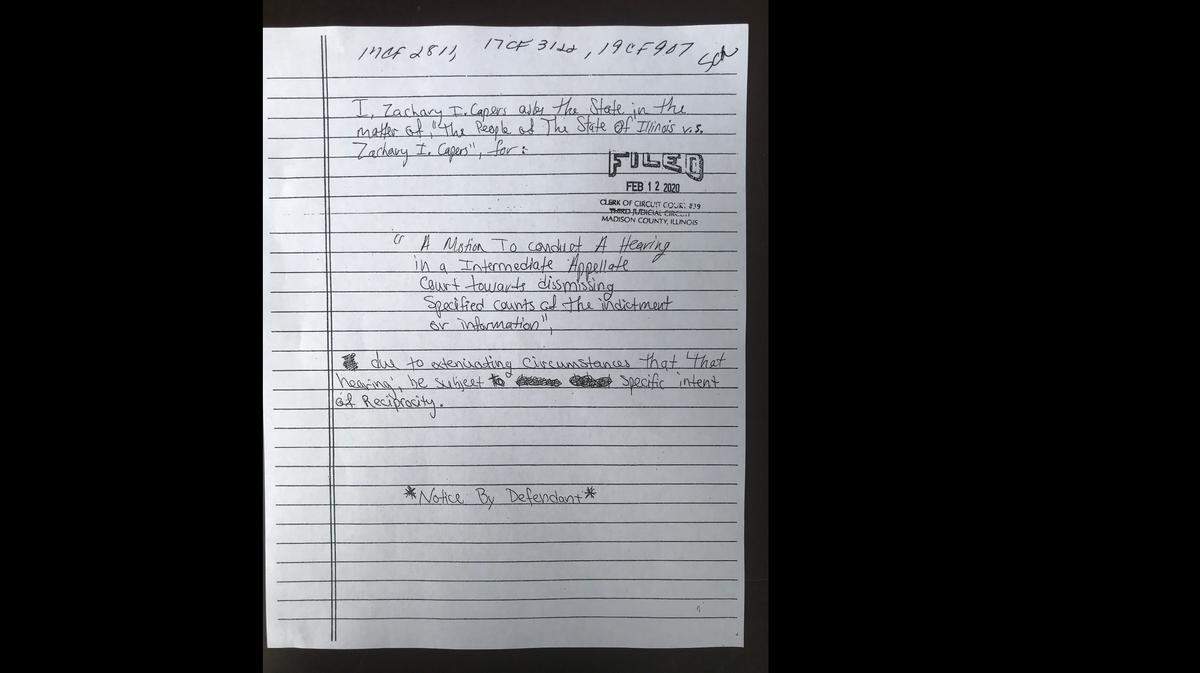 17CF2811, 17CF3122, 19CF907
I, Zachary I. Capers asks the State in the
matter of, "The People of The State Of Illinois v.s.
Zachary I. Capers", for:
FILED
FEB 12 2020
CLERK OF CIRCUIT COURT #39
THIRD JUDICIAL CIRCUIT
MADISON COUNTY, ILLINOIS
"A Motion To conduct A Hearing
in a Intermediate Appellate
Court towards dismissing
Specified counts of the indictment
or information",
due to extenuating Circumstances that 'that
hearing', be subject to Specific intent
of Reciprocity.
*Notice By Defendant*